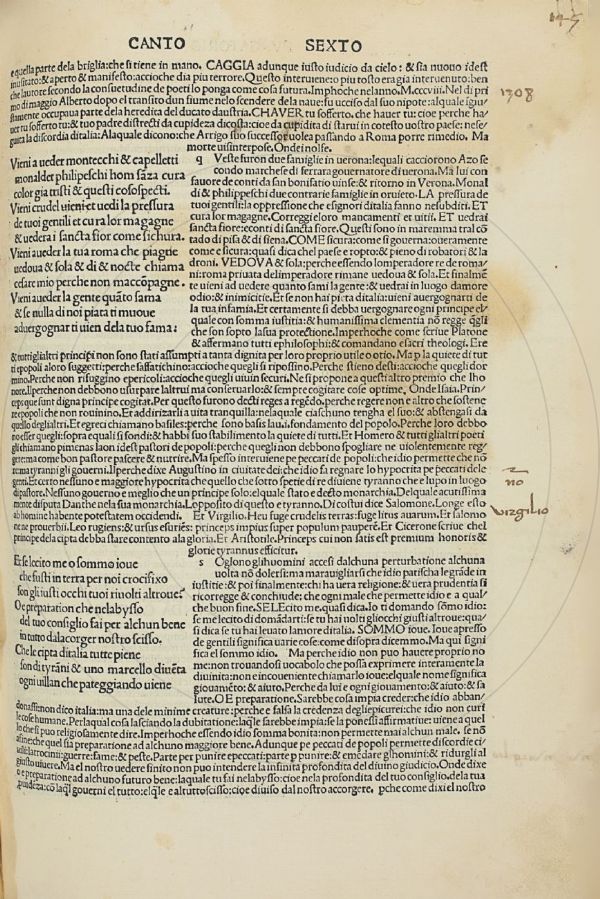 CANTO SEXTO
e quella parte dela briglia:che si tiene in mano. CAGGIA adunque iusto iudicio da cielo: & sia nuouo idest
inusitato:& aperto & manifesto:accioche dia piu terrore.Questo interuiene:o piu tosto era gia interuenuto:ben
che lautore secondo la consuetudine de poeti lo ponga come cosa futura.Imphoche nelanno.M.cccviii.Nel di pri
mo di maggio Alberto dopo el transito dun fiume nelo scendere dela naue:fu ucciso dal suo nipote:alquale
iustamente occupaua parte dela heredita del ducato daustria.CHAVER tu sofferto.che hauer tu:cioe perche ha/
uer tu sofferto tu:& tuo padre distrecti da cupideza di costa:cioe da cupidita di starui in cotesto uostro paese:
guita la discordia ditalia:Alaquale dicono:che Arrigo suo successor uolea passando a Roma porre rimedio. Ma
morte uisinterpose.Onde inolse.
1308
Vieni a ueder montecchi & capelletti
monaldi & philippeschi hom sāza cura
color gia tristi & questi cosospecti.
Vieni crudel uieni et uedi la pressura
de tuoi gentili et cura lor magagne
& uedera i sancta fior come sichura.
Vieni a ueder la tua roma che piagne
uedoua & sola & di & nocte chiama
cesare mio perche non maccōpagne.
Vieni a ueder la gente quāto sama
& se nulla di noi piata ti muoue
a uergognar ti uien dela tuo fama:
q Veste furon due famiglie in uerona:lequali cacciorono Azo se
condo marchese di ferrara gouernatore di uerona.Ma lui con
fauore de conti da san bonifatio uinse:& ritorno in Verona.Monal
di & philippeschi due contrarie famiglie in oruieto.LA pressura de
tuoi gentili:la oppressione che esignori ditalia fanno nesubditi. ET
cura lor magagne.Correggi eloro mancamenti et uitii. ET uedrai
sancta fiore:econti di sancta fiore.Questi sono in maremma tral cō
tado di pisa & di siena.COME sicura:come si gouerna:oueramente
come e sicura:quasi dica chel paese e ropto:& pieno di robatori & la
droni. VEDOVA & sola:perche essendo lomperadore re de roma/
ni:roma priuata delimperadore rimane uedoua & sola.Et finalmē
te uieni ad uedere quanto sami la gente:& uedrai in luogo damore
odio:& inimicitie.Et se non hai pieta ditalia:uieni auergognarti de
la tua infamia.Et certamente si debba uergognare ogni principe el
quale con somma iustitia:& humanissima clementia nō regge q̄gli
che son sopto lasua protectione. Imperhoche come scriue Platone
& affermano tutti ephilosophi:& comandano esacri theologi. Ere
& tutti glialtri principi non sono stati assumpti a tanta dignita per loro proprio utile o otio. Ma p̄ la quiete di tut
ti epopoli aloro suggetti:perche saffatichino:accioche quegli si riposino.Perche stieno desti:accioche quegli dor
mino.Perche non rifuggino epericoli:accioche quegli uiuin securi.Ne si propone a questi altro premio che lho
nore.Ilperche non debbono usurpare laltrui ma conseruarlo:& sempre cogitare cose optime. Onde Isaia.Prin/
ceps que sunt digna principe cogitat.Per questo furono decti reges a regēdo.perche regere non e altro che sostene
re epopoli che non rouinino.Et addirizarli a uita tranquilla:nelaquale ciaschuno tengha el suo:& abstengasi da
quello deglialtri.Et egreci chiamano basiles:perche sono basis lau.i.fondamento del popolo.Perche loro debbo
no esser quegli:sopra equali si fondi:& habbi suo stabilimento la quiete di tutti.Et Homero & tutti glialtri poeti
gli chiamano pimenas laon idest pastori de popoli:perche quegli non debbono spogliare ne uiolentemente reg/
gere:ma come bon pastore pascere & nutrire. Ma spesso interuiene pe peccati de popoli:che idio permette che nō
rema tyranni gli gouerni.Ilperche dixe Augustino in ciuitate dei:che idio fa regnare lo hypocrita pe peccati dele
genti.Et certo nessuno e maggiore hypocrita che quello che sotto spetie di re diuiene tyranno che e lupo in luogo
di pastore.Nessuno gouerno e meglio che un principe solo:elquale stato e decto monarchia.Delquale acutissima
mente disputa Danthe nela sua monarchia.Lopposito di questo e tyranno.Di costui dice Salomone. Longe esto
ab homine habente potestatem occidendi. Et Virgilio. Heu fuge crudelis terras:fuge litus auarum. Et salomo
ne ne prouerbii.Leo rugiens:& ursus esuriēs: princeps impius super populum pauperē.Et Cicerone scriue chel
principe dela cipta debba stare contento ala gloria.Et Aristotile. Princeps cui non satis est premium honoris &
glorie tyrannus efficitur.
no
virgilio
Et se lecito me o sommo ioue
che fusti in terra per noi crocifixo
son gli iusti occhi tuoi riuolti altroue?
O e preparation che nelabysso
del tuo consiglio fai per alchun bene
in tutto dalacorger nostro scisso.
Che le cipta ditalia tutte piene
son di tyrāni & uno marcello diuēta
ogni uillan che pateggiando uiene
s Oglono glihuomini accesi dalchuna perturbatione alchuna
uolta nō dolersi:ma marauigliarsi che idio patischa le grāde in
iustitie:& poi finalmente:chi ha uera religione:& uera prudentia si
ricorregge & conchiude:che ogni male che permette idio e a qual/
che buon fine.SELEcito me.quasi dica.Io ti domando sōmo idio:
se me lecito di domādarti:se tu hai uolti gliocchi giusti altroue:qua/
si dica se tu hai leuato lamore ditalia. SOMMO ioue.Ioue apresso
de gentili significa uarie cose:come disopra dicemmo.Ma qui signi
fica el sommo idio. Ma perche idio non puo hauere proprio no
me:non trouandosi uocabolo che possa exprimere interamente la
diuinita:non e incoueniente chiamarlo ioue:elquale nome significa
giouamēto:& aiuto.Perche da lui e ogni giouamento:& aiuto:& sa
lute.O E preparatione.Sarebbe cosa impia creder:che idio abban/
donassi:non dico italia:ma una dele minime creature:perche e falsa la credenza degliepicurei:che idio non curi
le cose humane.Perlaqual cosa lasciando la dubitatione:laq̄le sarebbe impia:se la ponessi affirmatiue: uiene a quel
lo che si puo religiosamente dire.Imperhoche essendo idio somma bonita:non permette mai alchun male, se nō
a fine:che quel sia preparatione ad alchuno maggiore bene.Adunque pe peccati de popoli permette discordie ci/
uili:latrocinii:guerre:fame:& peste.Parte per punire epeccati:parte p̄ punire:& emēdare glhomini:& ridurgli al
giusto uiuere.Ma el nostro uedere finito non puo intendere la infinita profondita del diuino giudicio.Onde dixe
o e preparatione ad alchuno futuro bene:laquale tu fai nelabysso:cioe nela profondita del tuo consiglio.dela tua
prudēza:cō laq̄l gouerni el tutto:elq̄le e altutto scisso:cioe diuiso dal nostro accorgere. p̄che come dixi el nostro